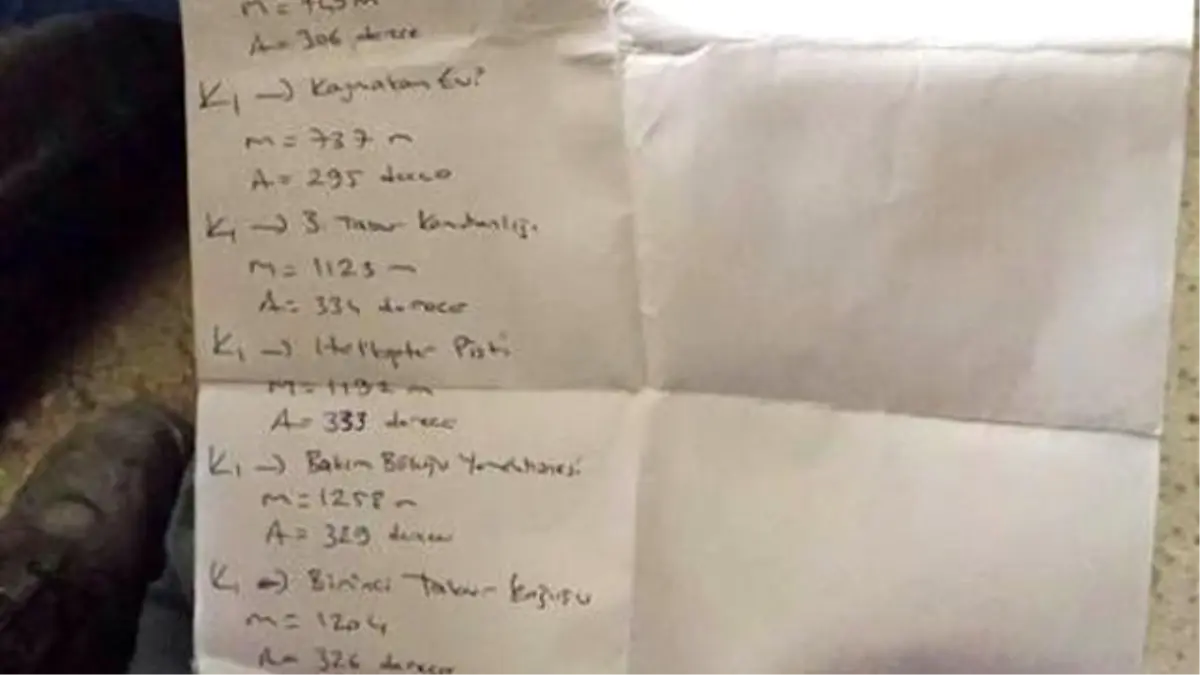 A= 306 derece
K1 → Kaymakam Evi
m= 737 m
A= 295 derece
K1 → 3. Tabur Komutanlığı
m= 1123 m
A= 334 derece
K1 → Helikopter Pisti
m= 1192 m
A= 333 derece
K1 → Bakım Bölüğü Yemekhanesi
m= 1258 m
A= 329 derece
K1 → Birinci Tabur Koğuşu
m= 1204
A= 326 derece